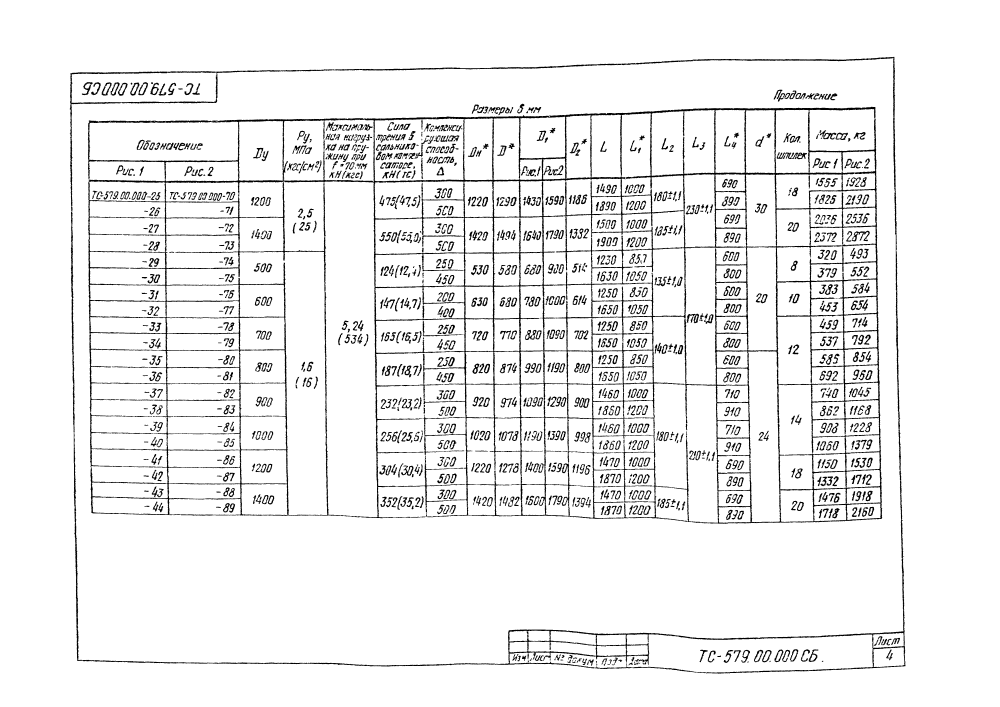 ТС-579.00.000СБ
Продолжение
Размеры в мм
Обозначение Ду Ру, МПа (кгс/см²) Максимальная нагрузка на пружину при f=70мм кН(кгс) Сила трения в сальниковом компенсаторе, кН(тс) Компенсирующая способность, Δ Dн* D* D₁* D₂* L L₁* L₂ L₃ L₄* d* Кол. шпилек Масса, кг
Рис. 1 Рис. 2 Рис.1 Рис2 Рис 1 Рис.2
ТС-579.00.000-25 ТС-579.00.000-70 1200 2,5 (25) 5,24 (534) 475(47,5) 300 1220 1290 1430 1590 1186 1490 1000 180±1,1 230±1,1 690 30 18 1555 1928
-26 -71 500 1890 1200 890 1825 2190
-27 -72 1400 550(55,0) 300 1420 1494 1640 1790 1392 1500 1000 185±1,1 690 20 2036 2536
-28 -73 500 1900 1200 890 2372 2872
-29 -74 500 1,6 (16) 124(12,4) 250 530 580 680 900 514 1230 850 135±1,0 170±1,0 600 20 8 320 493
-30 -75 450 1630 1050 800 379 552
-31 -76 600 147(14,7) 200 630 680 780 1000 614 1250 850 600 10 383 584
-32 -77 400 1650 1050 800 453 654
-33 -78 700 165(16,5) 250 720 770 880 1090 702 1250 850 140±1,0 600 12 459 714
-34 -79 450 1650 1050 800 537 792
-35 -80 800 187(18,7) 250 820 874 990 1190 800 1250 850 600 24 585 854
-36 -81 450 1650 1050 800 692 960
-37 -82 900 232(23,2) 300 920 974 1090 1290 900 1460 1000 180±1,1 210±1,1 710 14 740 1045
-38 -83 500 1860 1200 910 862 1168
-39 -84 1000 256(25,6) 300 1020 1078 1190 1390 998 1460 1000 710 908 1228
-40 -85 500 1860 1200 910 1060 1379
-41 -86 1200 304(30,4) 300 1220 1278 1400 1590 1196 1470 1000 690 18 1150 1530
-42 -87 500 1870 1200 890 1332 1712
-43 -88 1400 352(35,2) 300 1420 1482 1600 1790 1394 1470 1000 185±1,1 690 20 1476 1918
-44 -89 500 1870 1200 890 1718 2160
Изм Лист № докум Подп Дата
ТС-579.00.000 СБ.
Лист
4